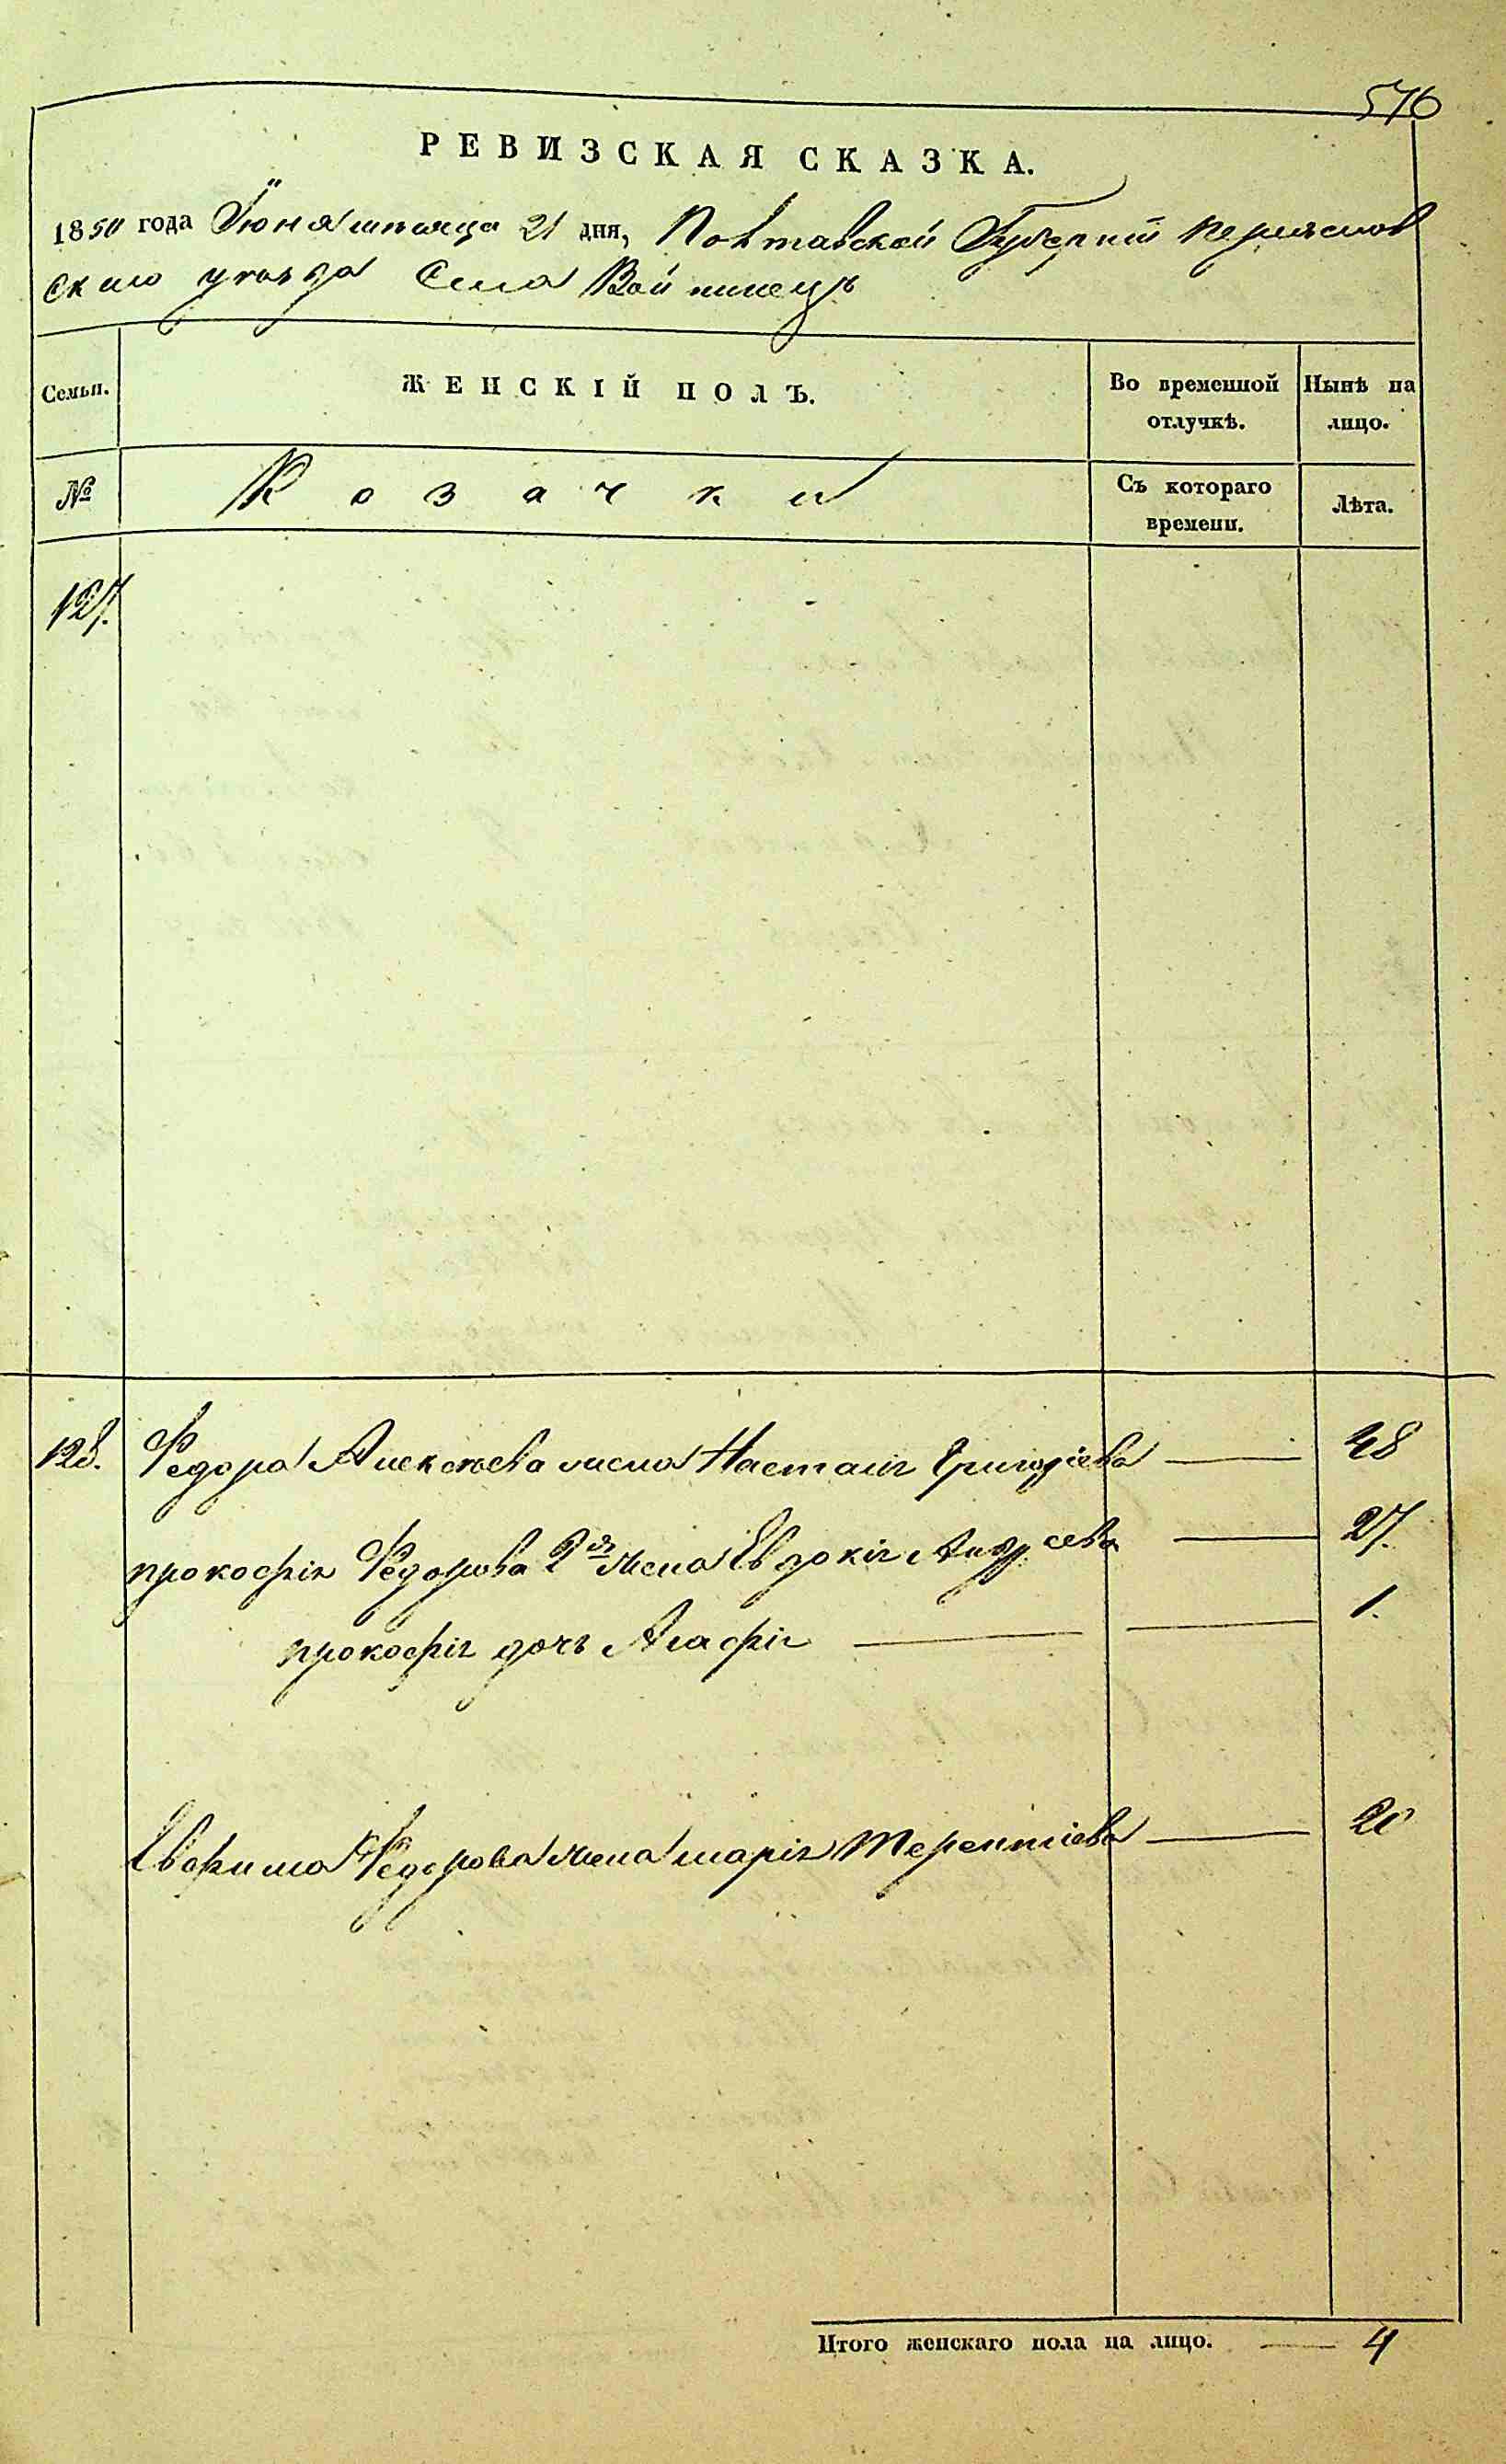 576
РЕВИЗСКАЯ СКАЗКА.
1850 года Іюня мѣсяца 21 дня, Полтавской Губерніи Переяслов
скаго уѣзда Села Войтинецъ
Семьи. ЖЕНСКІЙ ПОЛЪ. Во временной отлучкѣ. Нынѣ на лицо.
№ Козачки Съ котораго времени. Лѣта.
127.
128. Федора Алексѣева жена Настасія Григоріева — 48
Прокофія Федорова 2я жена Евдокія Андреева — 27.
Прокофія дочь Агафія — 1.
Евфима Федорова жена Марія Терентіева — 20
Итого женскаго пола на лицо. — 4